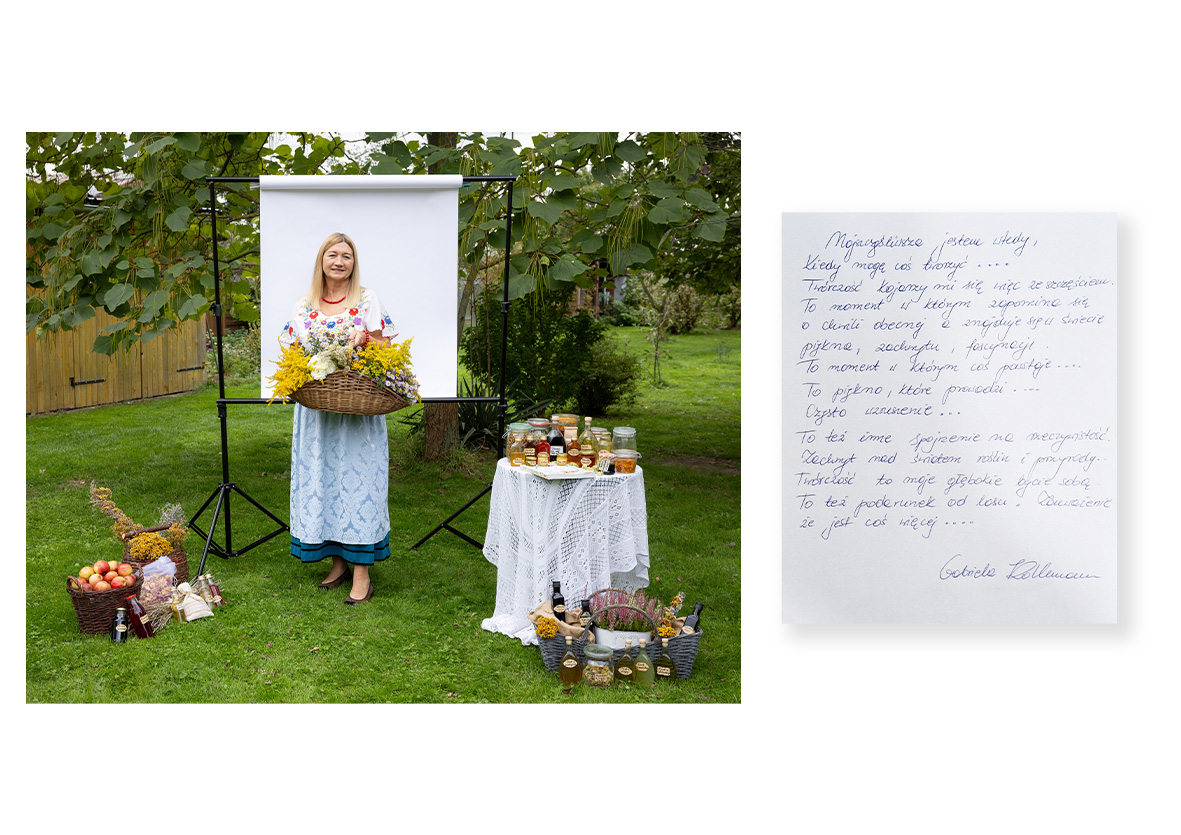 Najszczęśliwsza jestem wtedy,
kiedy mogę coś tworzyć ....
Twórczość kojarzy mi się więc ze szczęściem.
To moment w którym zapomina się
o chwili obecnej a znajduje się w świecie
piękna, zachwytu, fascynacji.
To moment w którym coś powstaje ....
To piękno, które prowadzi ....
Czysto wzniesienie ...
To też inne spojrzenie na rzeczywistość.
Zachwyt nad światem roślin i przyrody..
Twórczość to moje głębokie bycie sobą.
To też podarunek od losu.
że jest coś więcej ....
Gabriela